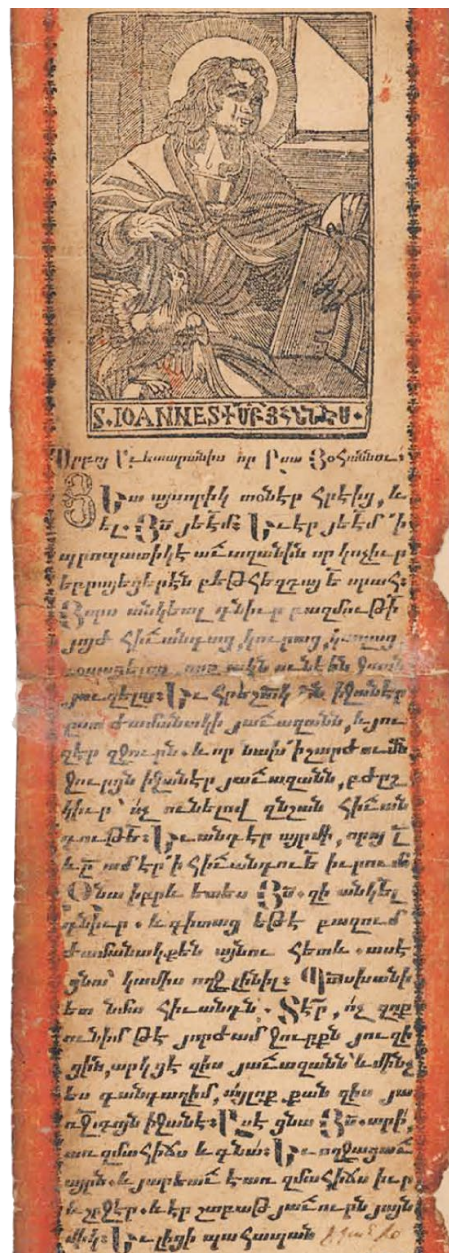 S. IOANNES ✢ ՍԲ ՅՀՆՆԷՍ ·
Սրբոյ Աւետարանիս որ ըստ Յօհաննօւ։
Յետ այսորիկ տօն էր Հրէից, և
ել Յս՛ յեէմ։ Եւ էր յեէմ ՛ի
պրոպատիկէ աւազանին որ կոչիւր
եբրայեցերէն բէթհեզդայ
Յորս անկեալ դնիւր բազմութի
յոյժ հիւանդաց, կուրաց, կաղաց,
ջուրցն
յուզելոյ։ Եւ Հրեշտակ իջանէր
ըստ ժամանակի յաւազանն, և յու
զէր զջուրն. և որ նախ ՛ի շարժումն
ջուրցն իջանէր յաւազանն, բժրշ
կիւր՝ ոչ ունելով զնշան հիւան
դութե։ Եւ անդ էր այր մի, որոյ
և ամ էր ՛ի հիւանդուե իւրում
Զնա իբրև ետես Յս. զի անկել
դնիւր. և գիտաց եթէ բազում
ժամանակք էն այնու հետև. ասէ
ցնա՝ կամիս ողջ լինիլ։ Պատսխանի
ետ նմա հիւանդն. Տէր, ոչ զոք
ունիմ թէ յորժամ ջուրքն յուզի
ցին, արկցէ զիս յաւազանն՝ և մինչ
ես դանդաղիմ, այլոք քան զիս յա
ռջագոյն իջանէ։ Ըսէ ցնա Յս. արի,
առ զմահիճս և գնա։ Եւ ողջացաւ
այրն. և յարեաւ էառ զմահիճս իւր
և շրջէր. և էր շաբաթ յաւուրն յայն
միկ։ Եւ լիցի պահապան